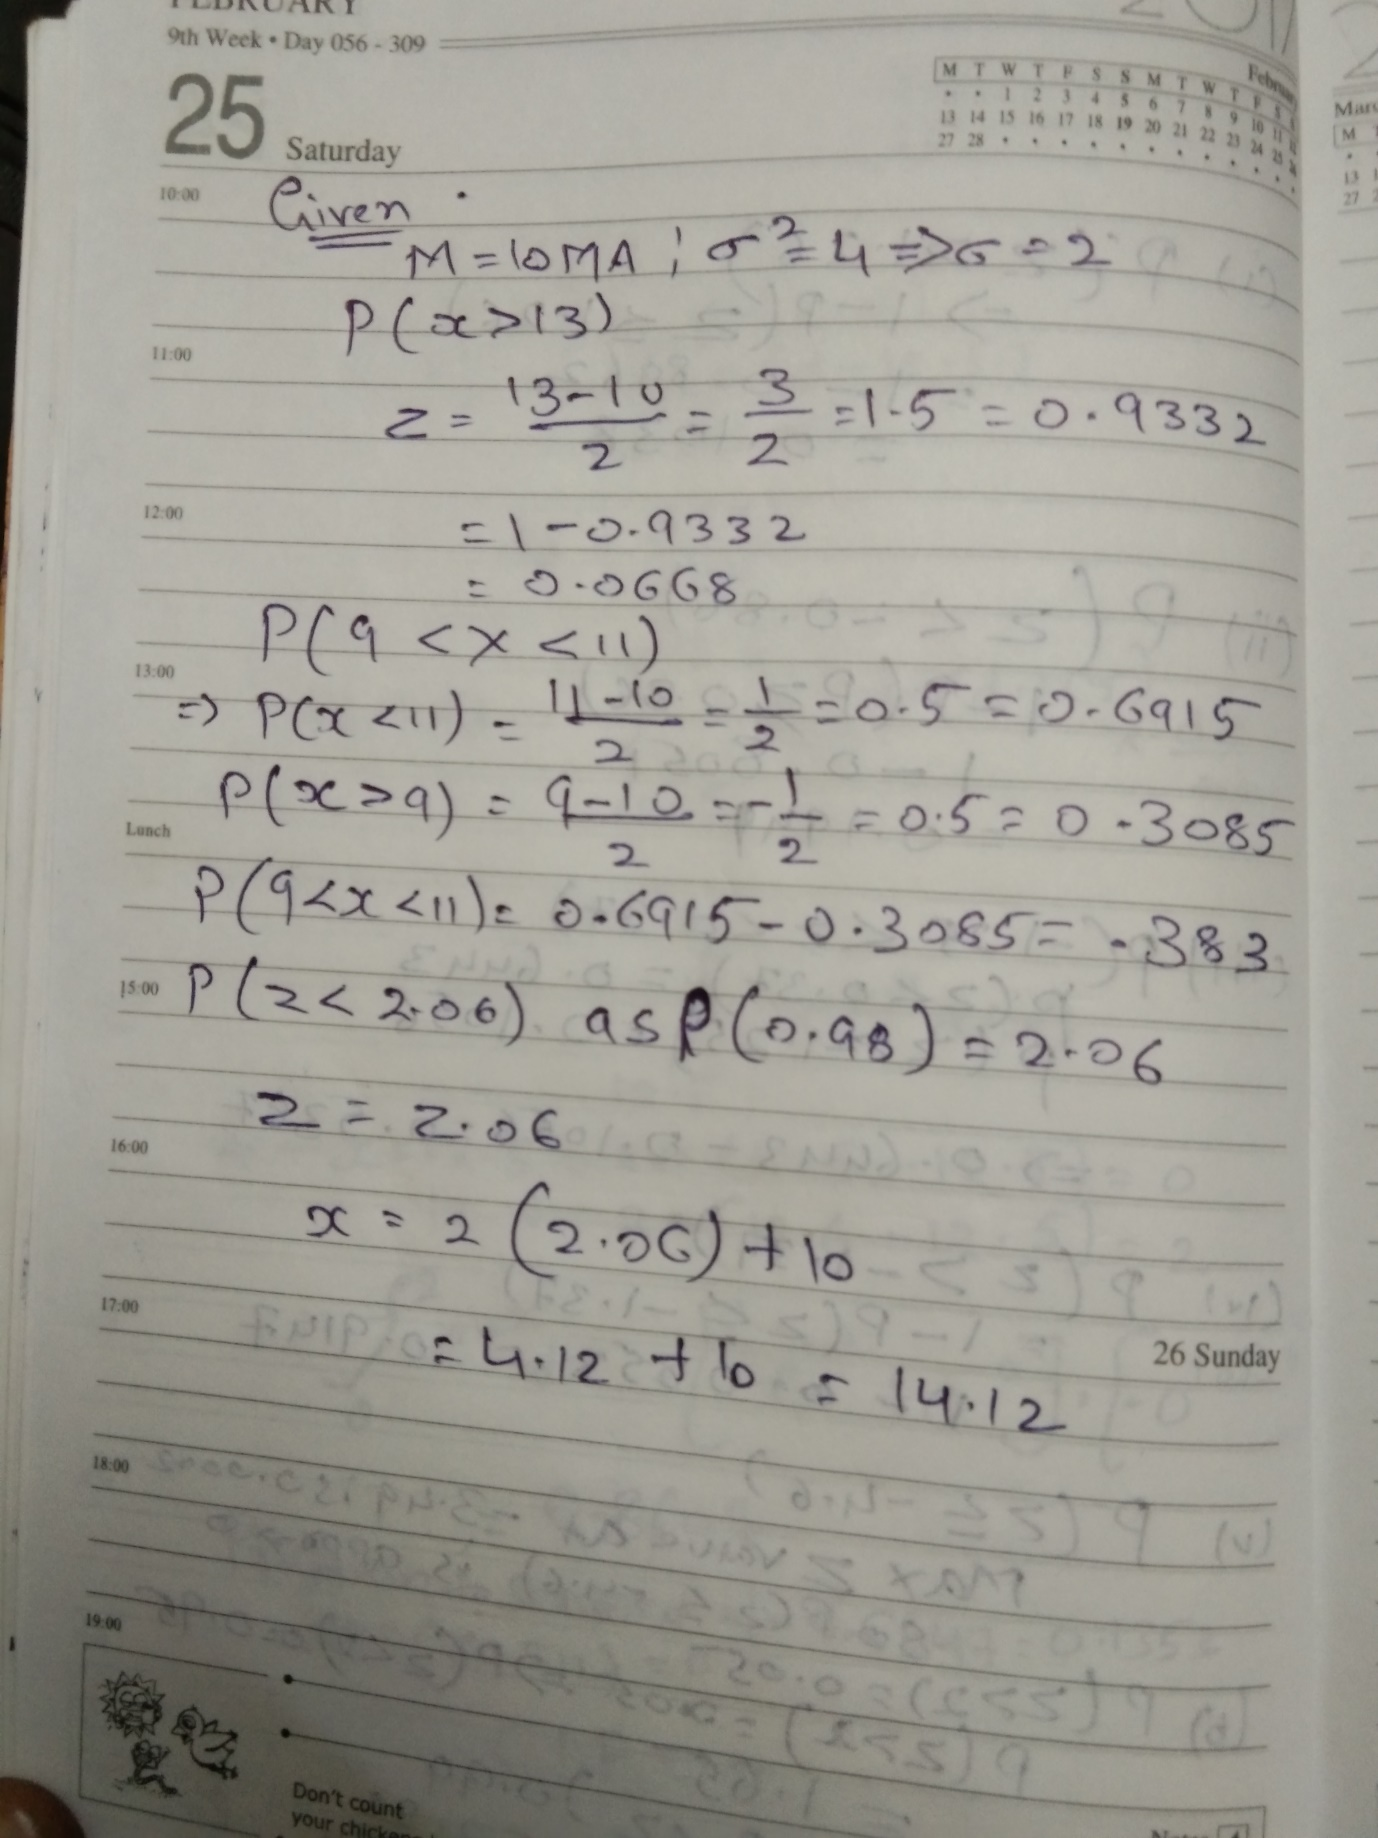 FEBRUARY
9th Week • Day 056 - 309
25 Saturday
M T W T F S S M T W T F S S
• • 1 2 3 4 5 6 7 8 9 10 11 12
13 14 15 16 17 18 19 20 21 22 23 24 25 26
27 28 • • • • • • • • • • • •
10:00
Given
M = 10MA ; σ² = 4 => σ = 2
P(x>13)
11:00
z = 13-10/2 = 3/2 = 1.5 = 0.9332
12:00
= 1 - 0.9332
= 0.0668
P(9 < x < 11)
13:00
=> P(x<11) = 11-10/2 = 1/2 = 0.5 = 0.6915
P(x>9) = 9-10/2 = -1/2 = 0.5 = 0.3085
Lunch
P(9<x<11) = 0.6915 - 0.3085 = .383
15:00
P(z< 2.06) as P(0.98) = 2.06
z = 2.06
16:00
x = 2(2.06) + 10
17:00
= 4.12 + 10 = 14.12
26 Sunday
18:00
19:00
Don't count
your